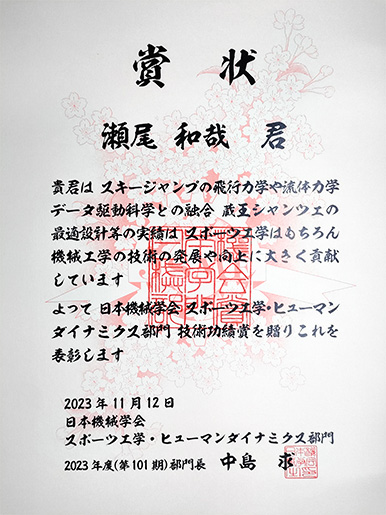 賞状
瀬尾 和哉 君
貴君は スキージャンプの飛行力学や流体力学
データ駆動科学との融合 蔵王シャンツェの
最適設計等の実績は スポーツ工学はもちろん
機械工学の技術の発展や向上に大きく貢献
しています
よって 日本機械学会 スポーツ工学・ヒューマン
ダイナミクス部門 技術功績賞を贈りこれを
表彰します
2023年11月12日
日本機械学会
スポーツ工学・ヒューマンダイナミクス部門
2023年度(第101期)部門長 中島 求